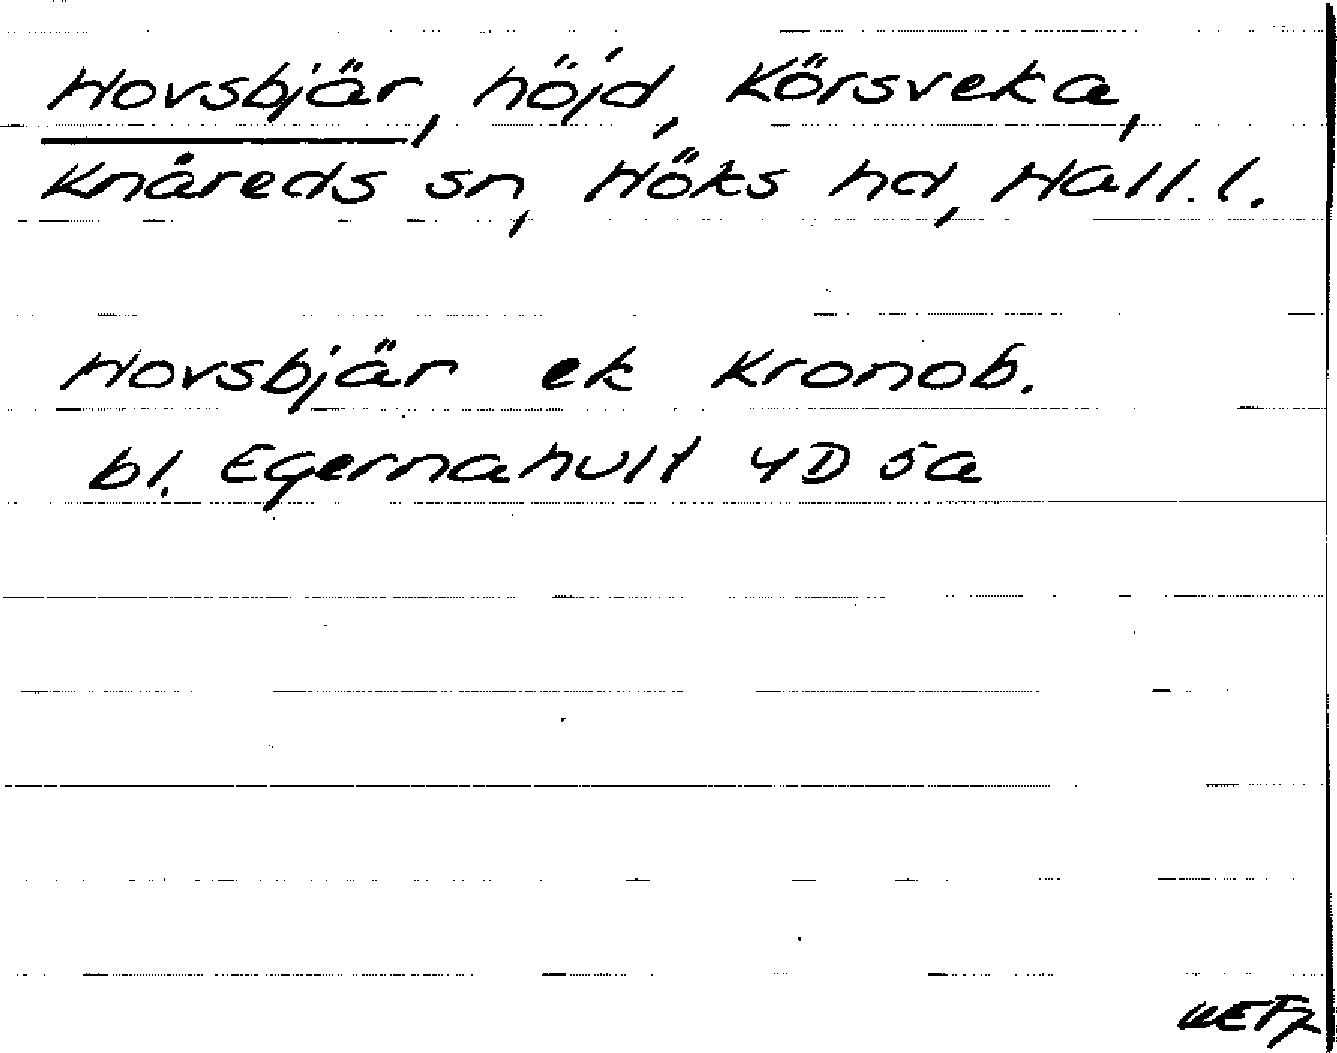 Hovsbjär, höjd, Körsveka,
Knäreds sn, Höks hd, Hall.l.
Hovsbjär ek Kronob.
bl. Egernahult 4D 5a